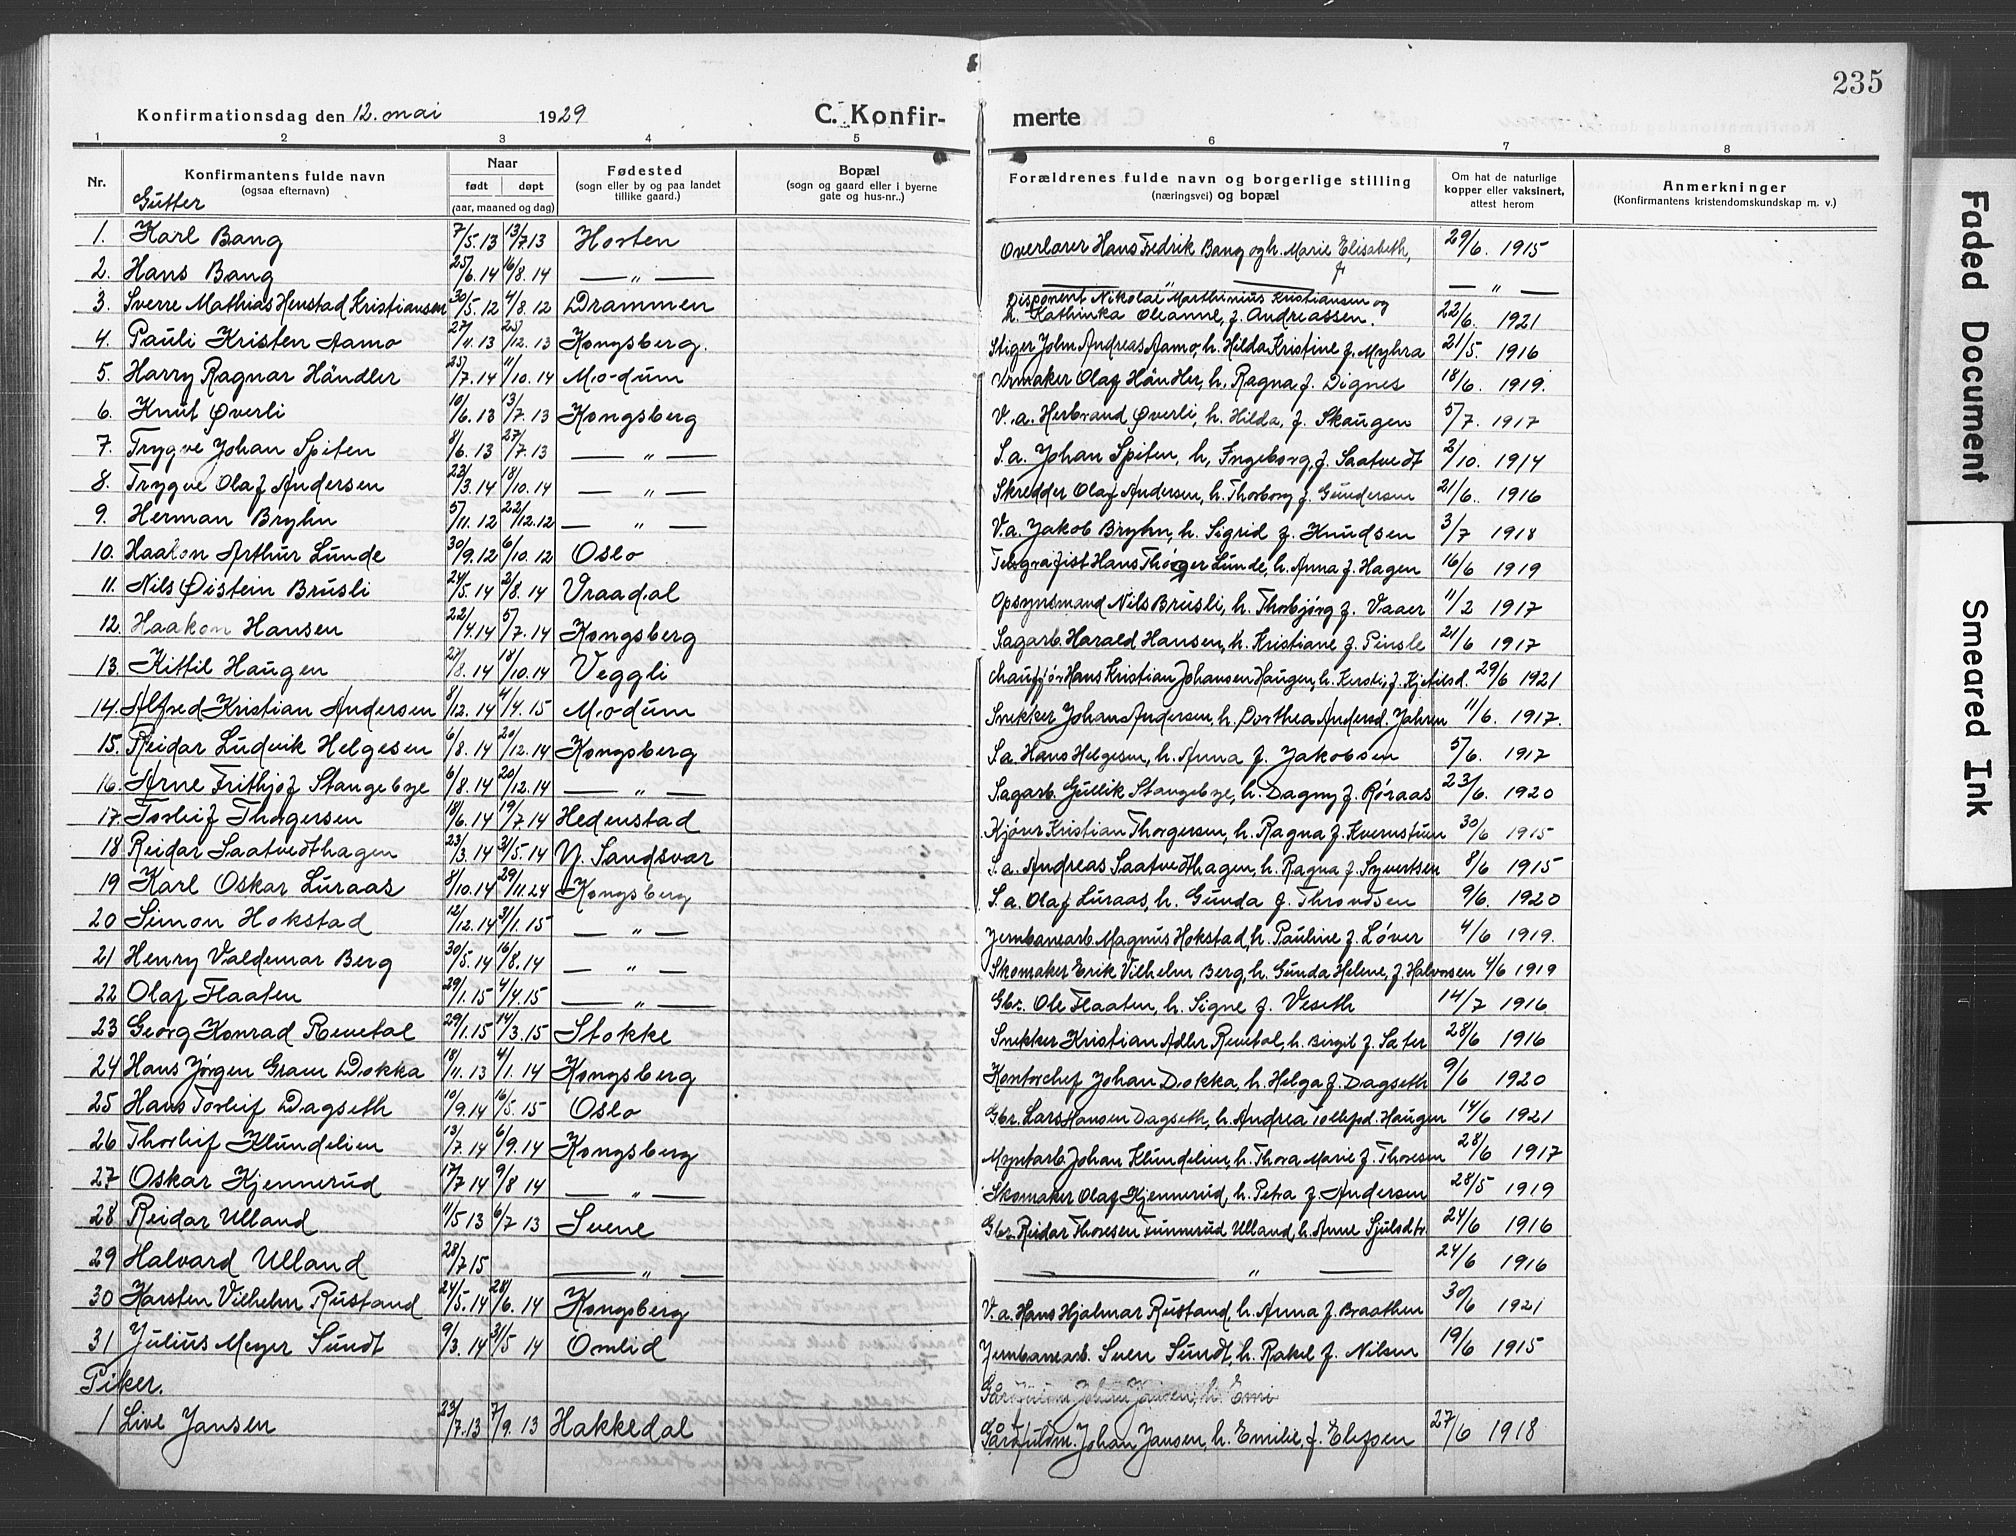 235
Konfirmationsdag den 12. mai 1929 C. Konfirmerte
1 2 3 4 5 6 7 8
Nr. Konfirmantens fulde navn (ogsaa efternavn) Naar født døpt (aar, maaned og dag) Fødested (sogn eller by og paa landet tillike gaard.) Bopæl (sogn og gaard eller i byerne gate og hus-nr..) Forældrenes fulde navn og borgerlige stilling (næringsvei) og bopæl Om hat de naturlige kopper eller vaksinert, attest herom Anmerkninger (Konfirmantens kristendomskundskap m. v.)
Gutter
1. Karl Bang 7/5.13 13/7 13 Horten Overlærer Hans Fredrik Bang og h. Marie Elisabeth, f. 29/6. 1915
2. Hans Bang 25/6.14 6/8.14 — " — — " — — " —
3. Sverre Mathias Henstad Kristiansen 30/5.12 4/8.12 Drammen Disponent Nikolai Marthinius Kristiansen og h. Kathinka Oleanne, f. Andreassen. 22/6. 1921
4. Pauli Kristen Aamo 27/11.13 25/12.13 Kongsberg. Stiger John Andreas Aamo, h. Hilda Kristine f. Myhra 21/5. 1916
5. Harry Ragnar Händler 25/7.14 11/10.14 Modum Urmaker Olaf Händler, h. Ragna, f. Dignes 18/6. 1919.
6. Knut Øverli 10/6.13 13/7.13 Kongsberg V.a. Herbrand Øverli, h. Hilda, f. Skaugen 5/7. 1917
7. Trygve Johan Spiten 8/6.13 27/7.13 — " — S.a. Johan Spiten, h. Ingeborg, f. Saatvedt 2/10. 1914
8. Trygve Olaf Andersen 23/3.14 18/10.14 — " — Skredder Olaf Andersen, h. Thorborg f. Gundersen 21/6. 1916
9. Herman Bryhn 5/11.12 22/12.12 — " — V.a. Jakob Bryhn, h. Sigrid f. Knudsen 3/7 1918
10. Haakon Arthur Lunde 30/9.12 6/10.12 Oslo Telegrafist Hans Thorger Lunde, h. Anna f. Hagen 16/6 1919
11. Nils Øistein Brusli 24/5.14 2/8.14 Vraadal Opsynsmand Nils Brusli, h. Thorbjørg f. Vaaer 11/2 1917
12. Haakon Hansen 22/4.14 5/7.14 Kongsberg Sagarb. Harald Hansen, h. Kristiane f. Pinsle 21/6 1917
13. Kittil Haugen 27/8.14 18/10.14 Veggli Chauffør Hans Kristian Johansen Haugen, h. Kersti, f. Kjetilsd. 29/6 1921
14. Alfred Kristian Andersen 8/12.14 4/4.15 Modum Snekker Johans Andersen, h. Dorthea Andersd. Jahren 11/6. 1917.
15. Reidar Ludvik Helgesen 6/8.14 20/12.14 Kongsberg S.a. Hans Helgesen, h. Anna f. Jakobsen 5/6. 1917
16. Arne Frithjof Stangebye 6/8.14 20/12.14 — " — Sagarb. Gullik Stangebye, h. Dagny f. Røraas 23/6. 1920
17. Torleif Thorgersen 18/6.14 19/7.14 Hedenstad Kjører Kristian Thorgersen, h. Ragna f. Kvernstuen 30/6 1915
18 Reidar Saatvedthagen 23/3.14 31/5.14 Y. Sandsvær S.a. Andreas Saatvedthagen, h. Ragna f. Syvertsen 8/6 1915
19 Karl Oskar Luraas 8/10.14 29/11.24 Kongsberg S.a. Olaf Luraas, h. Gunda f. Throndsen 9/6. 1920
20 Simon Hokstad 12/12.14 3/1.15 — " — Jernbanearb. Magnus Hokstad, h. Pauline f. Løver 4/6 1919.
21 Henry Valdemar Berg 30/5.14 16/8.14 — " — Skomaker Erik Vilhelm Berg, h. Gunda Helene, f. Halvorsen 4/6 1919
22 Olaf Flaaten 29/1.15 4/4.15 — " — Gbr. Ole Flaaten, h. Signe f. Veseth 14/7 1916
23 Georg Konrad Revetal 29/1.15 14/3.15 Stokke Snekker Kristian Adler Revetal, h. Birgit f. Sæter 28/6 1916
24 Hans Jørgen Gram Dokka 18/11.13 4/1.14 Kongsberg Kontorchef Johan Dokka, h. Helga f. Dagseth 9/6 1920
25 Hans Torleif Dagseth 10/9.14 16/5.15 Oslo Gbr. Lars Hansen Dagseth, h. Andrea Tollefsd. Haugen 14/6 1921
26 Thorleif Klundelien 13/7.14 6/9.14 Kongsberg Myntarb. Johan Klundelien, h. Thora Marie f. Thoresen 28/6 1917
27 Oskar Kjennerud 17/7 14 9/8 14 — " — Skomaker Olaf Kjennerud, h. Petra f. Andersen 28/5 1919
28 Reidar Ulland 11/5 13 6/7 13 Svene Gbr. Reidar Thoresen Tunnerud Ulland, h. Anne Sjulsdtr 24/6 1916
29 Halvard Ulland 28/7 15 — " — — " — 24/6 1916
30 Karsten Vilhelm Rustand 24/5.14 28/6.14 Kongsberg V.a. Hans Hjalmar Rustand, h. Anna f. Braathen 30/6 1921
31 Julius Meyer Sundt 9/3.14 31/5 14 Omlid Jernbanearb. Sven Sundt, h. Rakel f. Nilsen 19/6 1915
Piker.
Johan Jansen, h. Emi
1 Live Jansen 23/7.13 7/9.13 Hakkedal Gårdfuldm. Johan Jansen, h. Emilie, f. Elefsen 27/6 1918
Faded Document
Smeared Ink